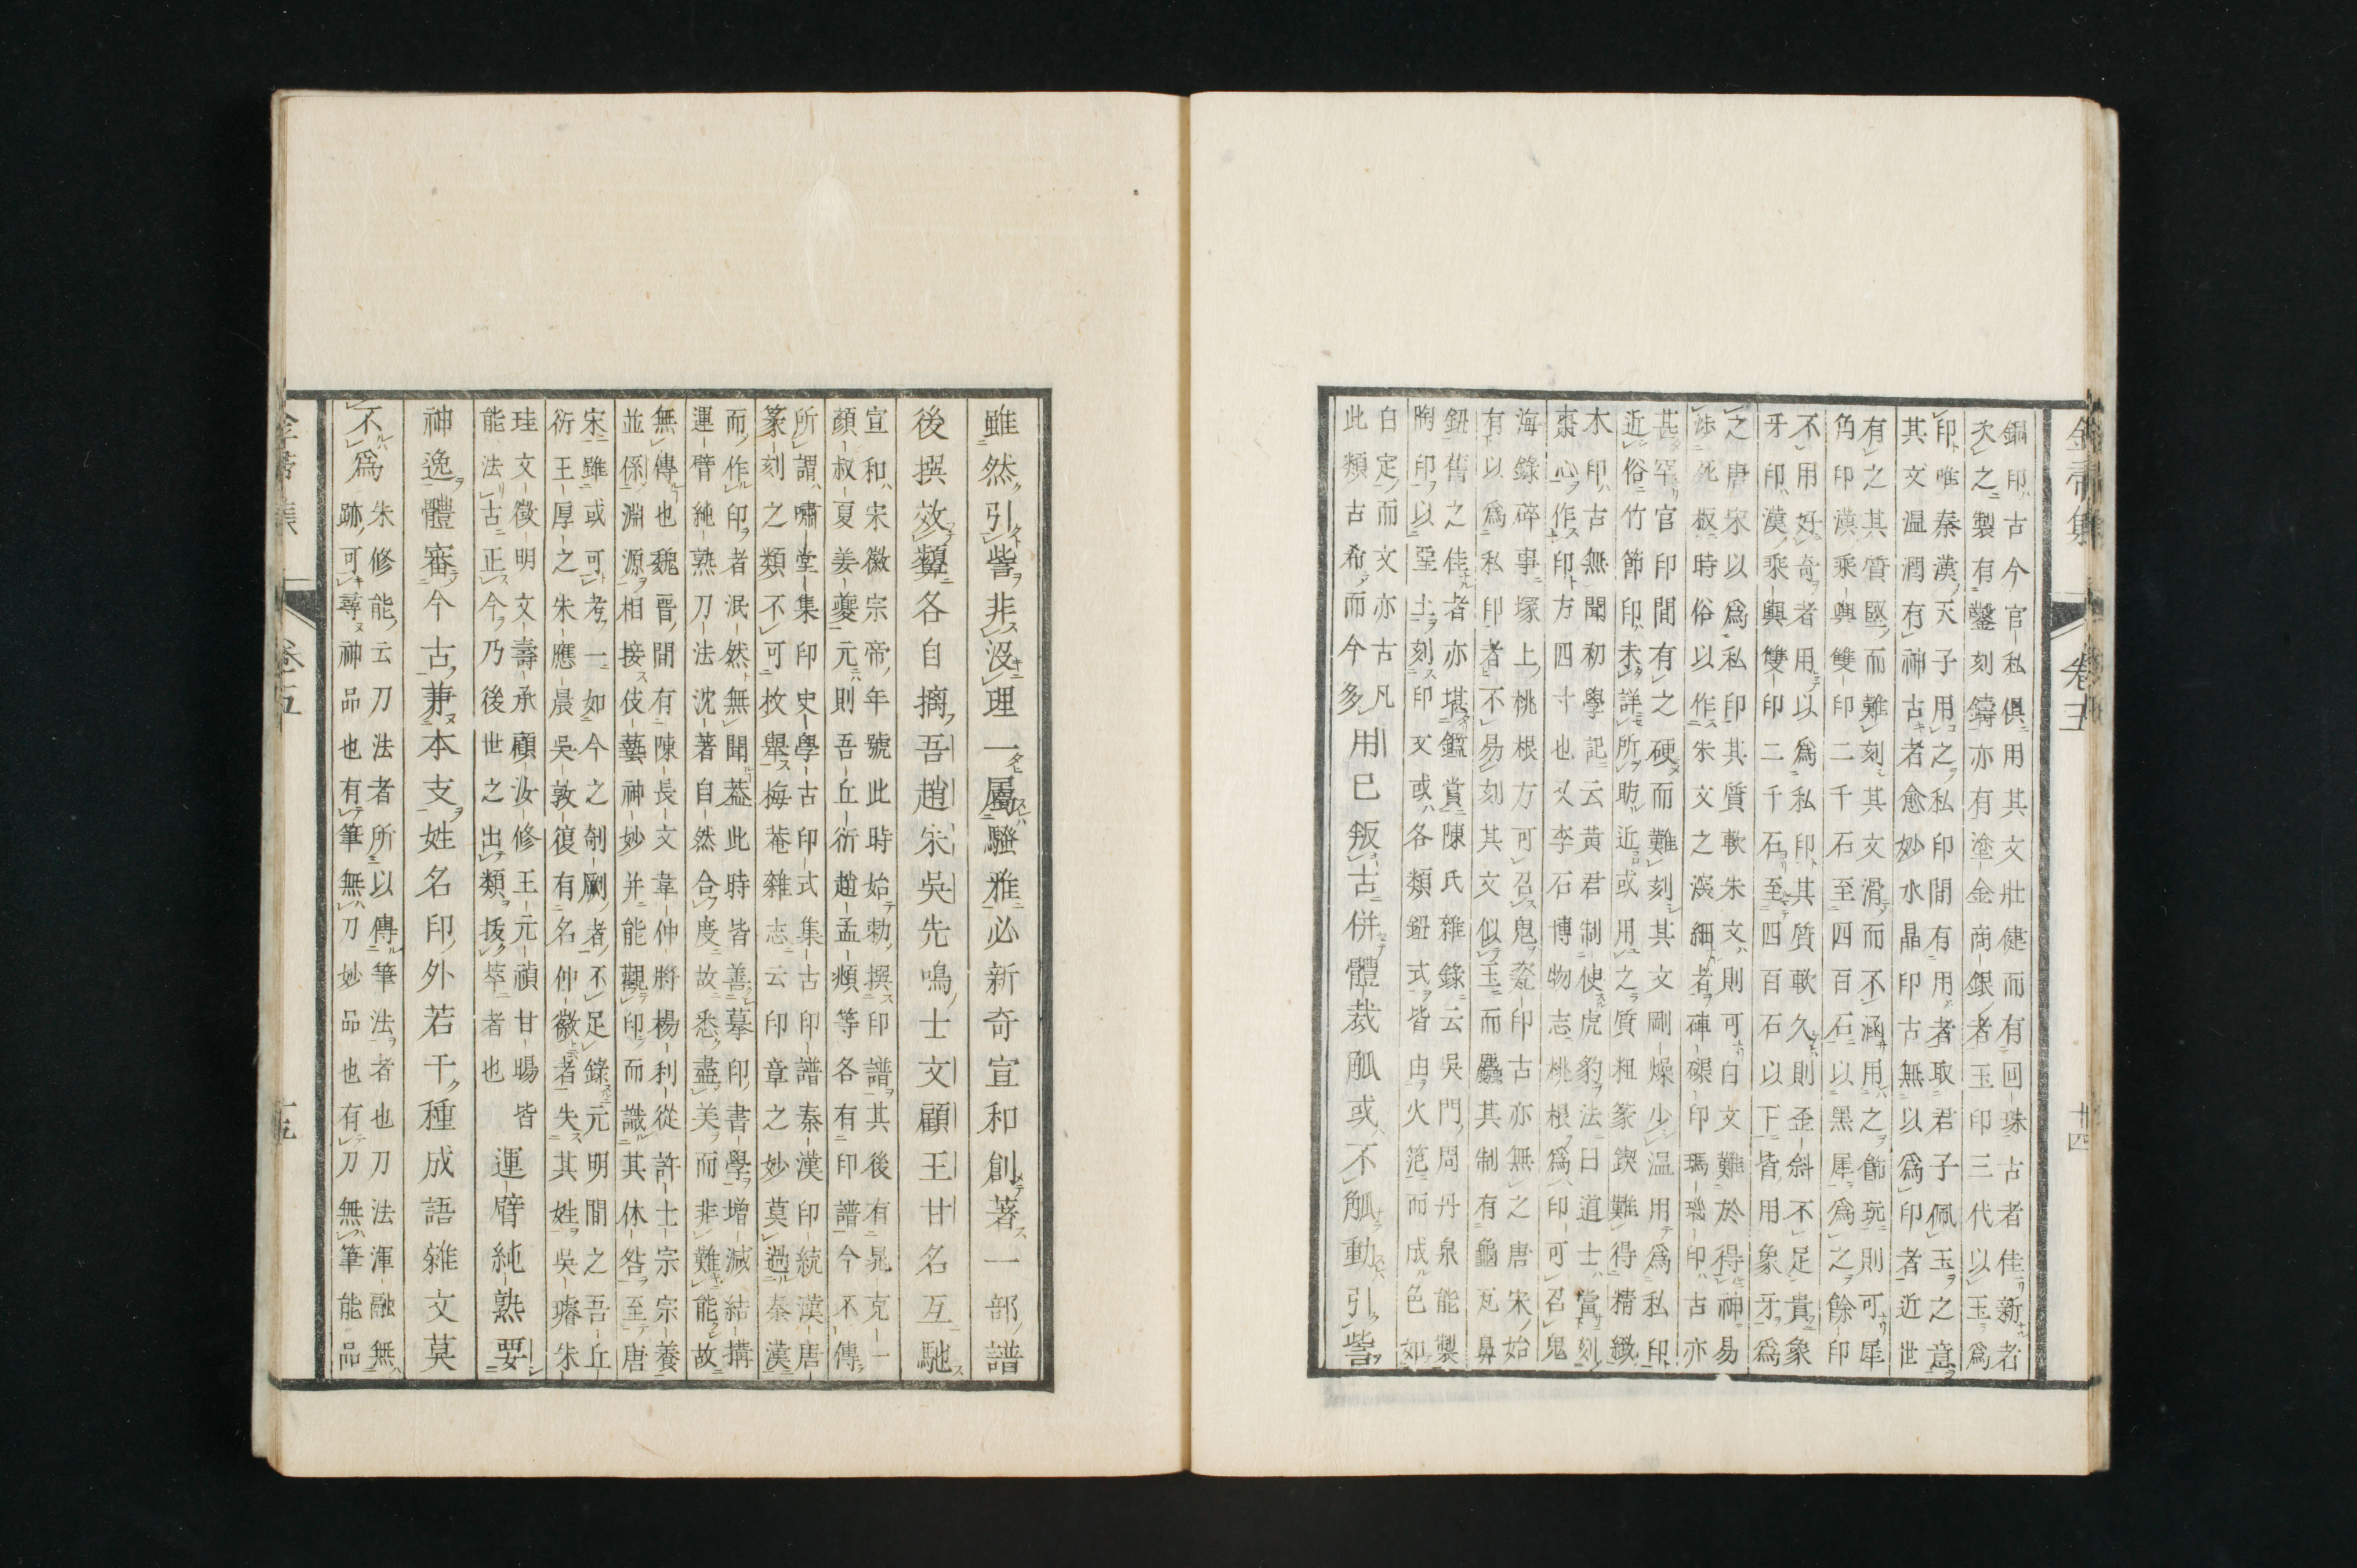 金帚集　卷五　廿四
銅印古今官私俱用其文壯健而有回珠古者佳新者
次之製有鑿刻鑄亦有塗金商銀者玉印三代以玉爲
印唯秦漢天子用之私印間有用者取君子佩玉之意
其文温潤有神古者愈妙水晶印古無以爲印者近世
有之其質堅而難刻其文滑而不涵用之飾玩則可犀
角印漢乘輿雙印二千石至四百石以黑犀爲之餘印
不用好奇者用以爲私印其質軟久則歪斜不足貴象
牙印漢乘輿雙印二千石至四百石以下皆用象牙爲
之唐宋以爲私印其質軟朱文則可白文難於得神易
涉死板時俗以作朱文之深細者硨磲印瑪瑙印古亦
甚罕官印間有之硬而難刻其文剛燥少温用爲私印
近俗竹節印未詳所昉近或用之質粗篆鍥難得精緻
木印古無聞初學記云黃君制使虎豹法曰道士當刻
棗心作印方四寸也又李石博物志桃根爲印可召鬼
海錄碎事塚上桃根方可召鬼瓷印古亦無之唐宋始
有以爲私印者不易刻其文似玉而麤其制有龜瓦鼻
鈕舊之佳者亦堪鑑賞陳氏雜錄云吳門周丹泉能製
陶印以堊土刻印文或各類鈕式皆由火笵而成色如
白定而文亦古凡
此類古希而今多
用已叛古併體裁觚或不觚動引訾
雖然引訾非沒理一屬騷雅必新奇宣和創著一部譜
後撰效顰各自摛吾趙宋吳先鳴士文顧王甘名互馳
宣和宋徽宗帝年號此時始勅撰印譜其後有晁克一
顔叔夏姜夔元則吾丘衍趙孟頫等各有印譜今不傳
所謂嘯堂集印史學古印式集古印譜秦漢印統漢唐
篆刻之類不可枚舉梅菴雜志云印章之妙莫過秦漢
而作印者泯然無聞葢此時皆善摹印書學增減結搆
運臂純熟刀法沈著自然合度故悉盡美而非難能故
無傳也魏晋間有陳長文韋仲將楊利從許士宗宗養
並係淵源相接伎藝神妙并能觀印而識其休咎至唐
宋雖或可考一如今之剞劂者不足錄元明間之吾丘
衍王厚之朱應晨吳敦復有名仲徽者失其姓吳璿朱
珪文徵明文壽承顧汝修王元禎甘暘皆
能法古正今乃後世之出類拔萃者也
運臂純熟要
神逸體審今古兼本支姓名印外若干種成語雜文莫
不爲
朱修能云刀法者所以傳筆法者也刀法渾融無
跡可尋神品也有筆無刀妙品也有刀無筆能品